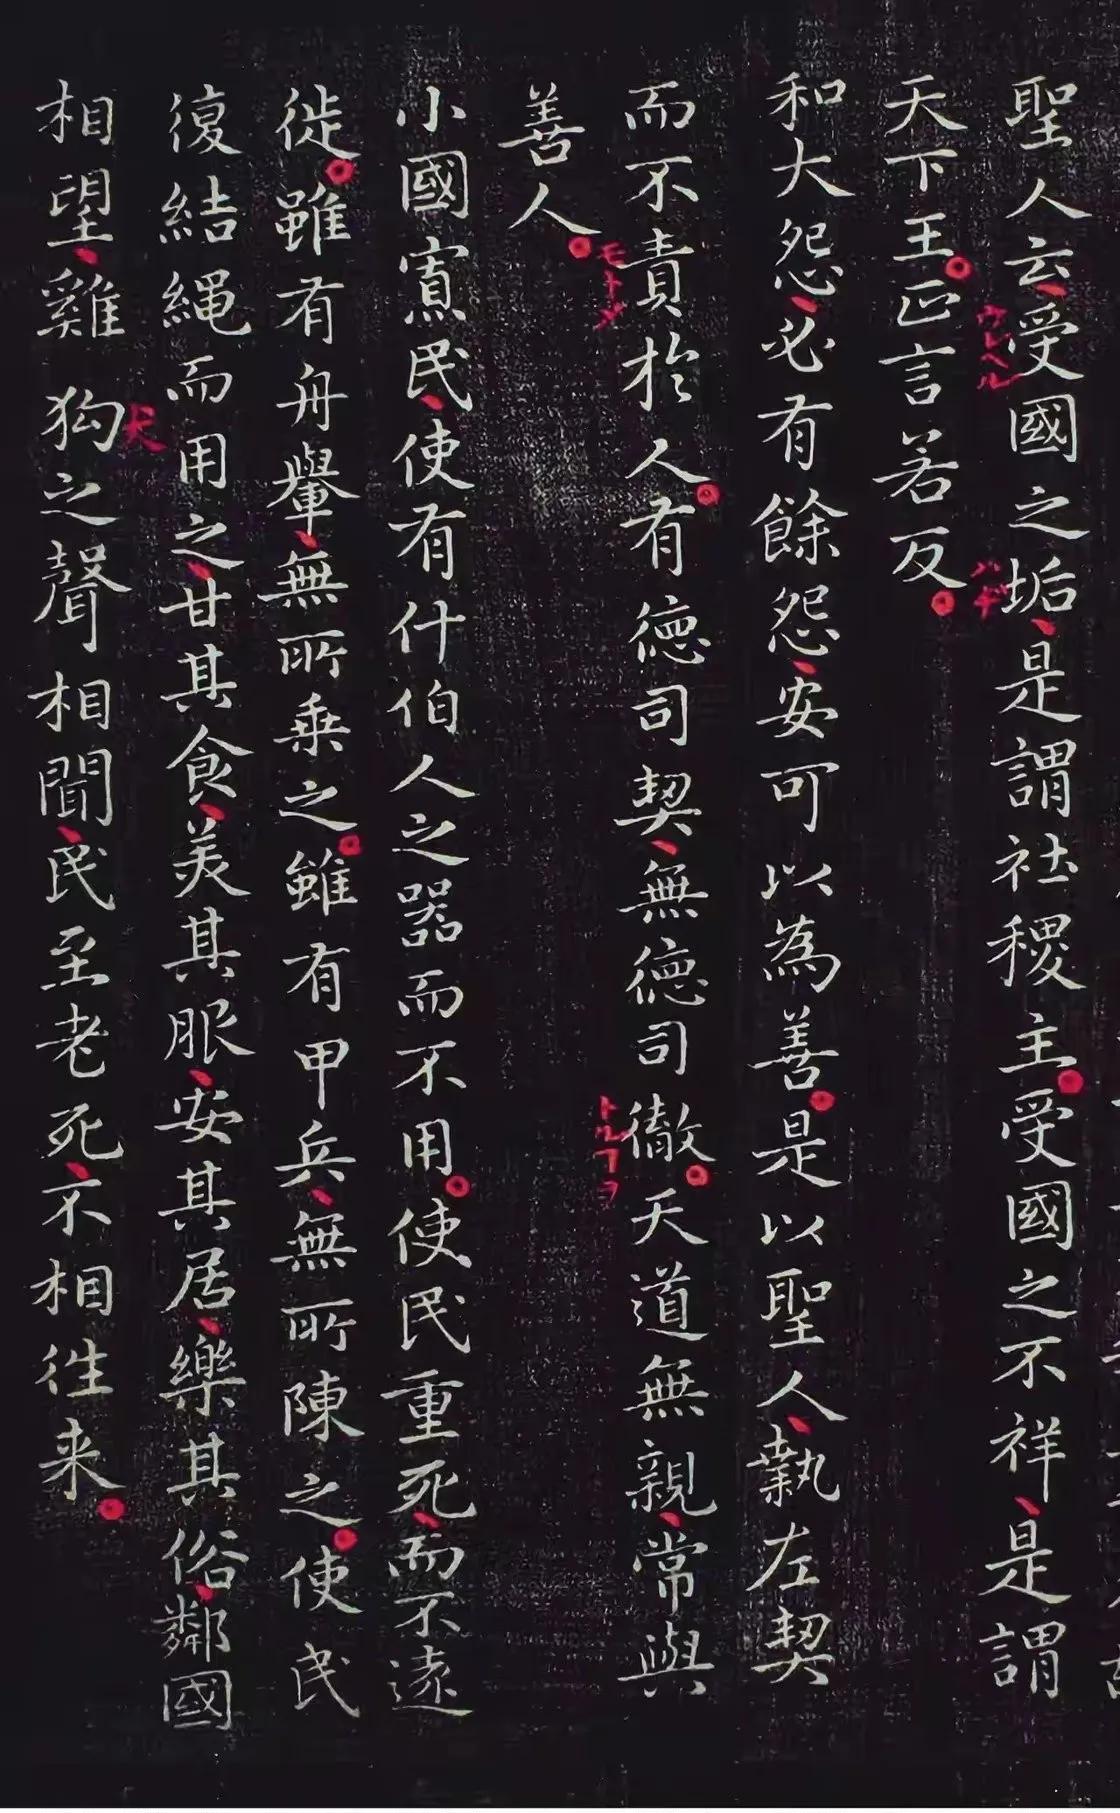 聖人云、受國之垢、是謂社稷主。受國之不祥、是謂
ウレヘル
ハヂ
天下王。正言若反。
和大怨、必有餘怨、安可以為善。是以聖人、執左契
而不責於人。有德司契、無德司徹。天道無親、常與
モトメ
トルコヲ
善人。
小國寡民、使有什伯人之器而不用。使民重死、而不遠
徙。雖有舟轝、無所乗之。雖有甲兵、無所陳之。使民
復結繩而用之、甘其食、美其服、安其居、樂其俗、鄰國
相望、雞狗之聲相聞、民至老死、不相往来。
犬